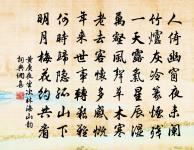 人倚幽窗夜未闌
竹爐灰冷篆煙殘
一天露氣星辰濶
萬壑風聲草木寒
老去客懷多感慨
年來世事轉艱難
何時歸隱孤山下
明月梅花約共看
黃庚夜坐次林梅山韻
詞典網集